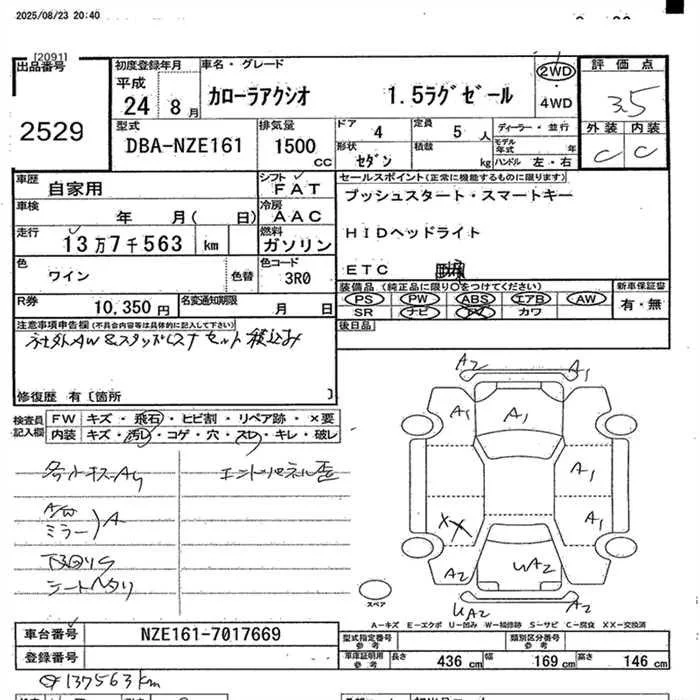 2025/08/23 20:40
[2091]
出品番号
2529
初度登録年月
平成
24 8 月
車名・グレード
カローラアクシオ 1.5ラグゼール
2WD
・
4WD
評価点
3.5
外装 内装
C C
型式
DBA-NZE161
排気量
1500 cc
ドア 4
定員 5 人
形状 セダン
積載 kg
ディーラー・並行
モデル年式 年
ハンドル 左・右
車歴
自家用
シフト
FAT
車検
年 月( 日)
冷房
AAC
走行
13万7千563 km
燃料
ガソリン
色
ワイン
色替
色コード
3R0
R券
10,350 円
名変通知期限
月 日
セールスポイント(正常に機能するものに限ります)
プッシュスタート・スマートキー
HIDヘッドライト
ETC
装備品(純正品に限り○をつけてください)
PS PW ABS エアB AW
SR ナビ カワ
新車保証書
有・無
後日品
注意事項申告欄(不具合内容等は具体的に記入して下さい)
修復歴 有〔箇所 〕
検査員
記入欄
FW キズ・飛石・ヒビ割・リペア跡・×要
内装 キズ・汚レ・コゲ・穴・スレ・キレ・破レ
ミラー)A
シートヘタリ
A2 A2
A1 A1
A1
A1
XX
A2 UA2
UA2 A2
スペア
A-キズ E-エクボ U-凹み W-補修跡 S-サビ C-腐食 XX-交換済
車台番号 NZE161-7017669
登録番号
137563km
型式指定番号
参考
類別区分番号
参考
車庫証明用
参考
長さ 436 cm 幅 169 cm 高さ 146 cm